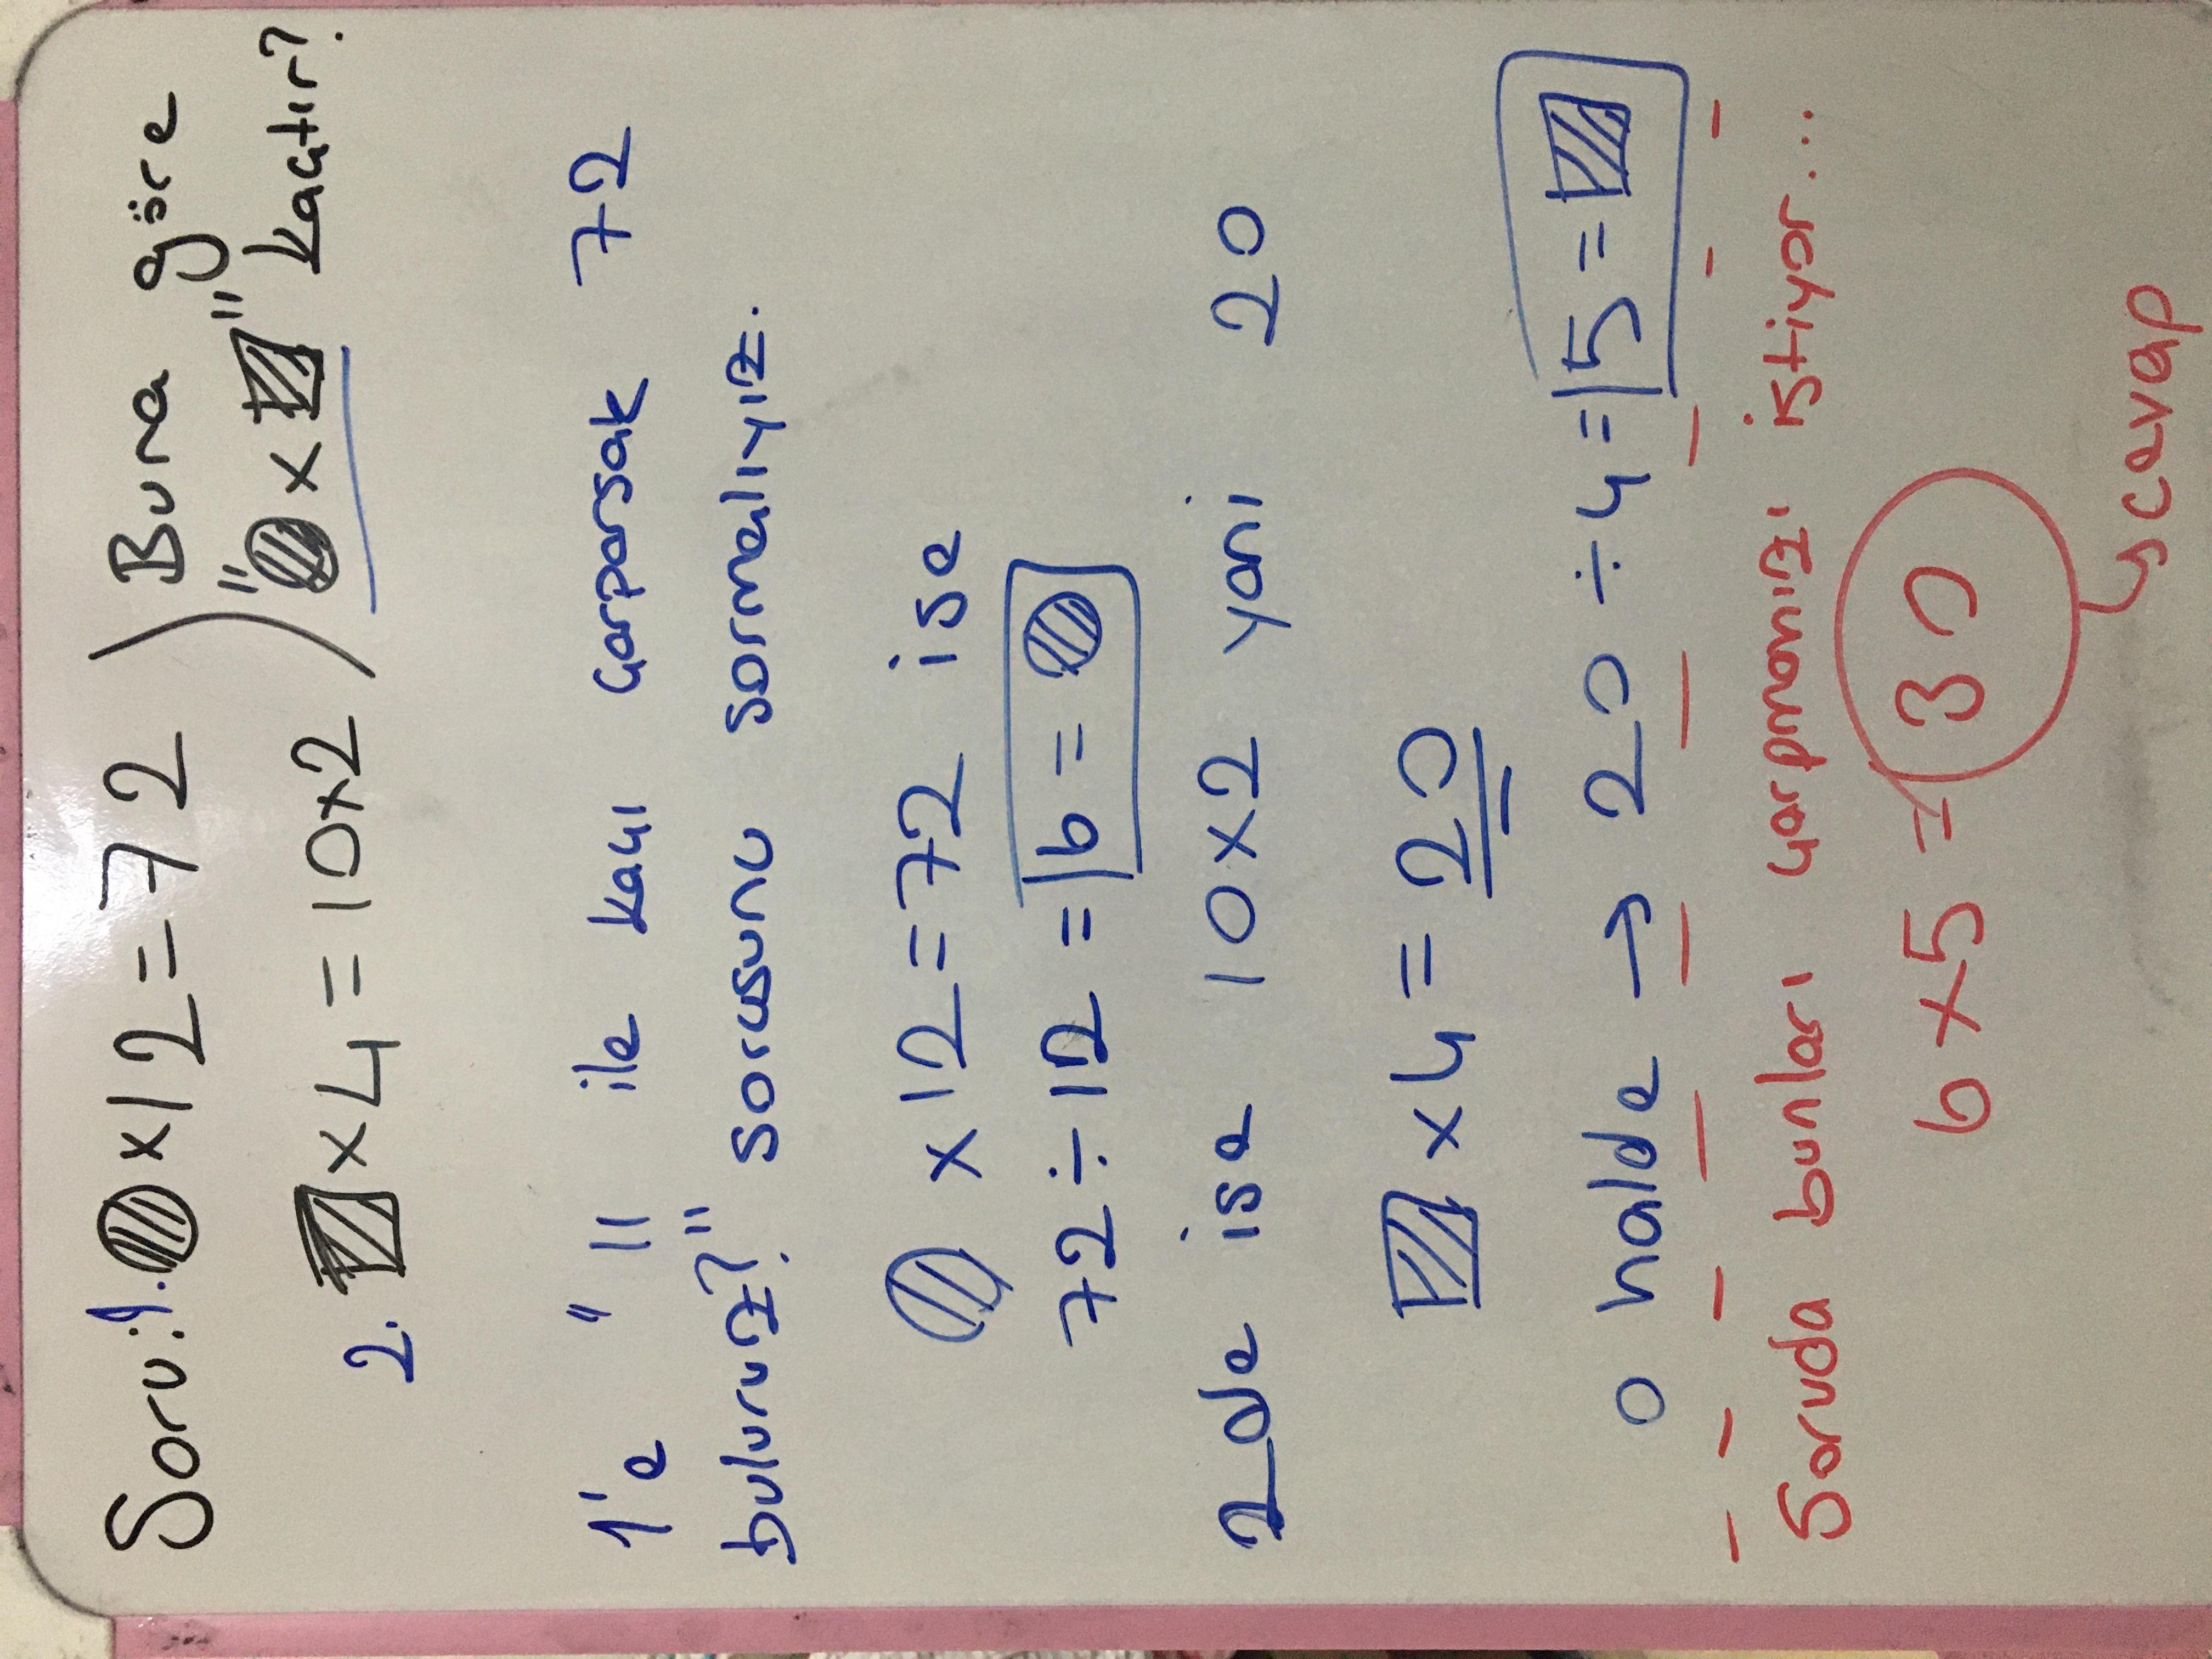 Soru: 1. ●x12=72 ) Buna göre
2. ■x4=10x2 ) "●x■" kaçtır?
1'e "11 ile kaçı çarparsak 72
buluruz?" sorusunu sormalıyız.
● x12=72 ise
72÷12 = 6 = ●
2de ise 10x2 yani 20
■ x4 = 20
o halde → 20÷4=5=■
Soruda bunları çarpmanızı istiyor...
6x5=30
cevap